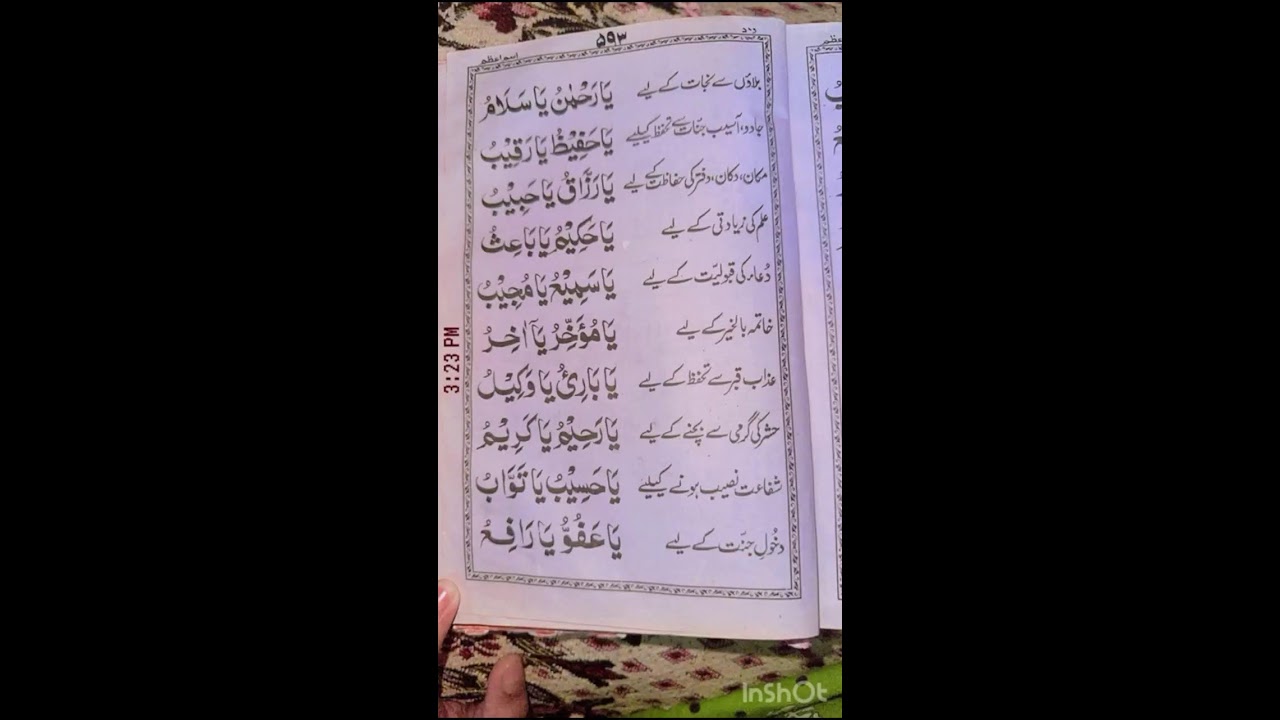 ۵۹۳
اسم اعظم
بلاؤں سے نجات کے لیے يَا رَحْمٰنُ يَا سَلَامُ
جادو، آسیب جنّات سے تحفظ کیلیے يَا حَفِيْظُ يَا رَقِيْبُ
مکان، دکان، دفتر کی حفاظت کے لیے يَا رَزَّاقُ يَا حَبِيْبُ
علم کی زیادتی کے لیے يَا حَكِيْمُ يَا بَاعِثُ
دُعاء کی قبولیّت کے لیے يَا سَمِيْعُ يَا مُجِيْبُ
خاتمہ بالخیر کے لیے يَا مُؤَخِّرُ يَآ اٰخِرُ
عذاب قبر سے تحفظ کے لیے يَا بَارِئُ يَا وَكِيْلُ
حشر کی گرمی سے بچنے کے لیے يَا رَحِيْمُ يَا كَرِيْمُ
شفاعت نصیب ہونے کیلیے يَا حَسِيْبُ يَا تَوَّابُ
دخُولِ جنّت کے لیے يَا عَفُوُّ يَا رَافِعُ
3:23 PM
InShOt